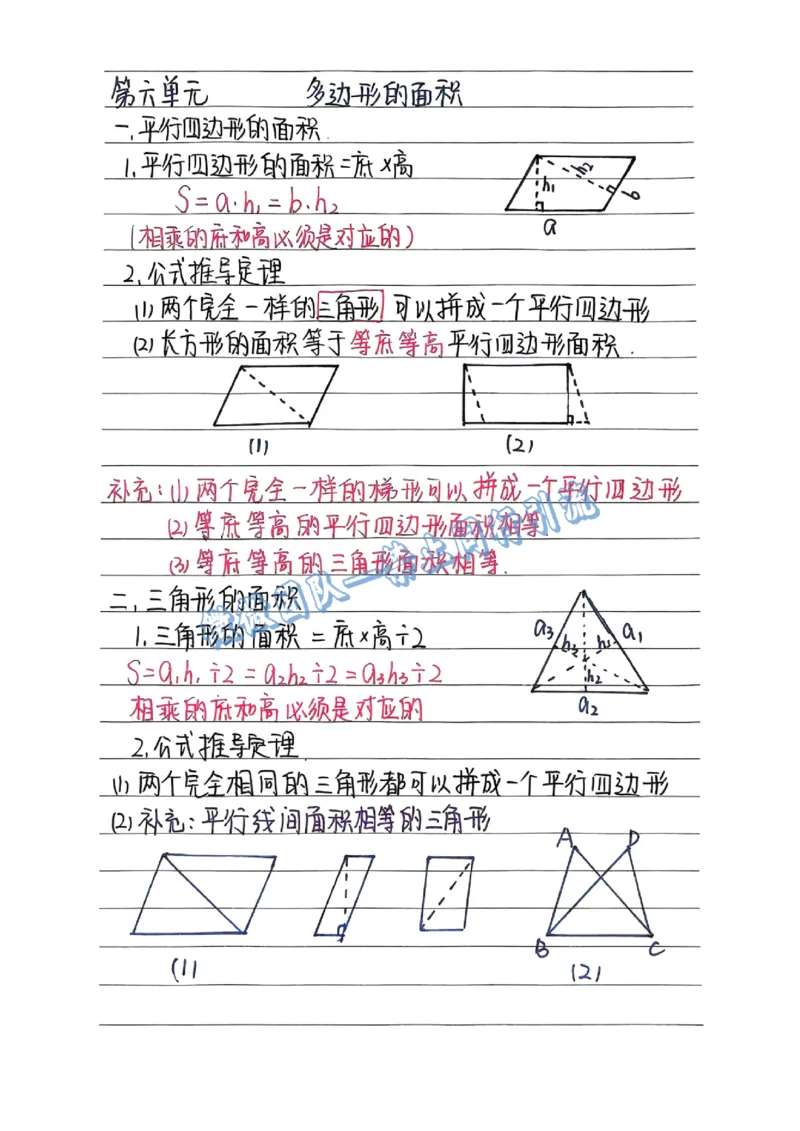 第六单元 多边形的面积
一、平行四边形的面积.
1.平行四边形的面积=底×高
S=a·h₁=b·h₂
(相乘的底和高必须是对应的)
h₁
h₂
b
a
2.公式推导定理
(1)两个完全一样的三角形可以拼成一个平行四边形
(2)长方形的面积等于等底等高平行四边形面积.
(1)
(2)
补充:(1)两个完全一样的梯形可以拼成一个平行四边形
(2)等底等高的平行四边形面积相等
(3)等底等高的三角形面积相等.
二、三角形的面积
1.三角形的面积=底×高÷2
S=a₁h₁÷2=a₂h₂÷2=a₃h₃÷2
相乘的底和高必须是对应的
a₃
h₃
h₁
a₁
h₂
a₂
2.公式推导定理
(1)两个完全相同的三角形都可以拼成一个平行四边形
(2)补充:平行线间面积相等的三角形
A
D
B
C
(1)
(2)